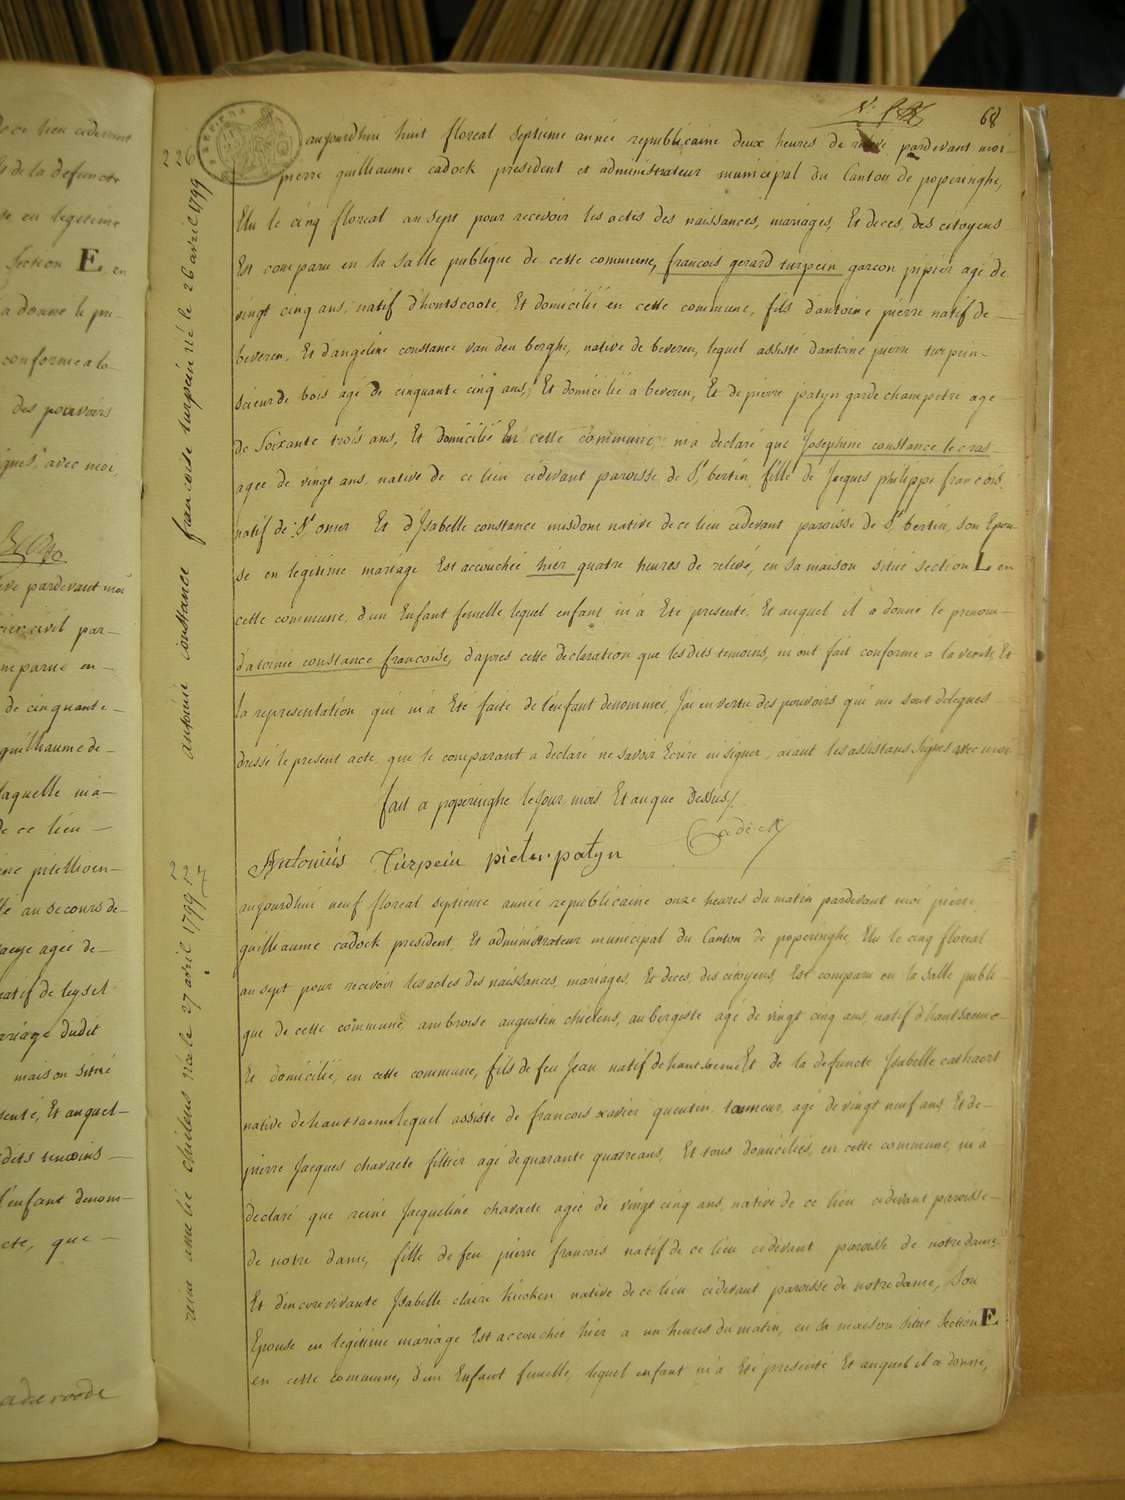 de ce lieu cidevant
Et de la defuncte
se en legitime
Section E en
a donne le pre-
conforme a la
des pouvoirs
signés, avec moi,
levé pardevant moi
officier civil par-
comparu en-
de cinquante-
guillaume de-
laquelle m'a-
de ce lieu-
au secours de-
agée de-
natif de leysel
mariage dudit
maison située
senté, Et auquel-
dits temoins-
l'enfant denom-
acte, que-
aderoode
68
226
antoinie constance francoise turpein né le 26 avril 1799
aujourdhui huit floreal septieme année republicaine deux heures de relevé pardevant moi-
pierre guilliaume cadock president et administrateur municipal du Canton de poperinghe,
Elu le cinq floreal an sept pour recevoir les actes des naissances, mariages, Et deces, des citoyens-
Est comparu en la salle publique de cette commune, francois gerard turpein garcon pipier agé de
vingt cinq ans, natif d'hontscoote, Et domicilié en cette commune, fils d'antoine pierre natif de-
beveren, Et d'angeline constance van den berghe, native de beveren, lequel assisté d'antoine pierre turpein-
scieur de bois agé de cinquante cinq ans, Et domicilié a beveren, Et de pierre patyn garde champetre age-
de Soixante trois ans, Et domicilié En cette commune, m'a declaré que Josephine constance le cras-
agee de vingt ans, native de ce lieu cidevant paroisse de St bertin, fille de Jacques philippe francois,
natif de St omer Et d'Isabelle constance misdom native de ce lieu cidevant paroisse de St bertin, son Epou-
se en legitime mariage Est accouchée hier quatre heures de relevé, en sa maison situé section L en
cette commune, d'un Enfant femelle, lequel enfant m'a Ete presenté, Et auquel il a donné le prenom-
d'atoinie constance francoise, d'apres cette declaration que lesdits temoins, m'ont fait conforme a la verité, Et
la representation qui m'a Eté faite de l'enfant denommée, J'ai en vertu des pouvoirs qui me sont delegués-
dressé le present acte, que le comparant a declaré ne savoir Ecrire ni signer, aiant les assistans Signés avec moi
fait a poperinghe le jour, mois Et an que Dessus/.
Cadock
Antonius Turpein pieter patyn
227
reine amelié chielens née le 27 avril 1799
aujourdhui neuf floreal septieme année republicaine onze heures du matin pardevant moi pierre
guilliaume cadock president, Et administrateur municipal du Canton de poperinghe, Elu le cinq floreal
an sept pour recevoir les actes des naissances, mariages, Et deces, des citoyens Est comparu en la salle publi-
que de cette commune, ambroise augustin chielens, aubergiste agé de vingt cinq ans, natif d'hautsaeme-
Et domicilié, en cette commune, fils de feu Jean natif de hautsaeme Et de la defuncte Ysabelle cathaert
native de hautsaeme lequel assisté de francois xavier quentin tanneur, agé de vingt neuf ans, Et de-
pierre Jacques chavaete filtier agé de quarante quatre ans, Et tous domiciliés, en cette commune, m'a
declaré que reine Jacqueline chavaete agée de vingt cinq ans, native de ce lieu cidevant paroisse-
de notre dame, fille de feu pierre francois natif de ce lieu cidevant paroisse de notre dame
Et d'encore vivante Isabelle claire kieken native de ce lieu cidevant paroisse de notre dame, Son
Epouse en legitime mariage Est accouchée hier a un heures du matin, en sa maison située Section E.
en cette commune, d'un Enfant femelle, lequel enfant m'a Eté presenté Et auquel il a donné,